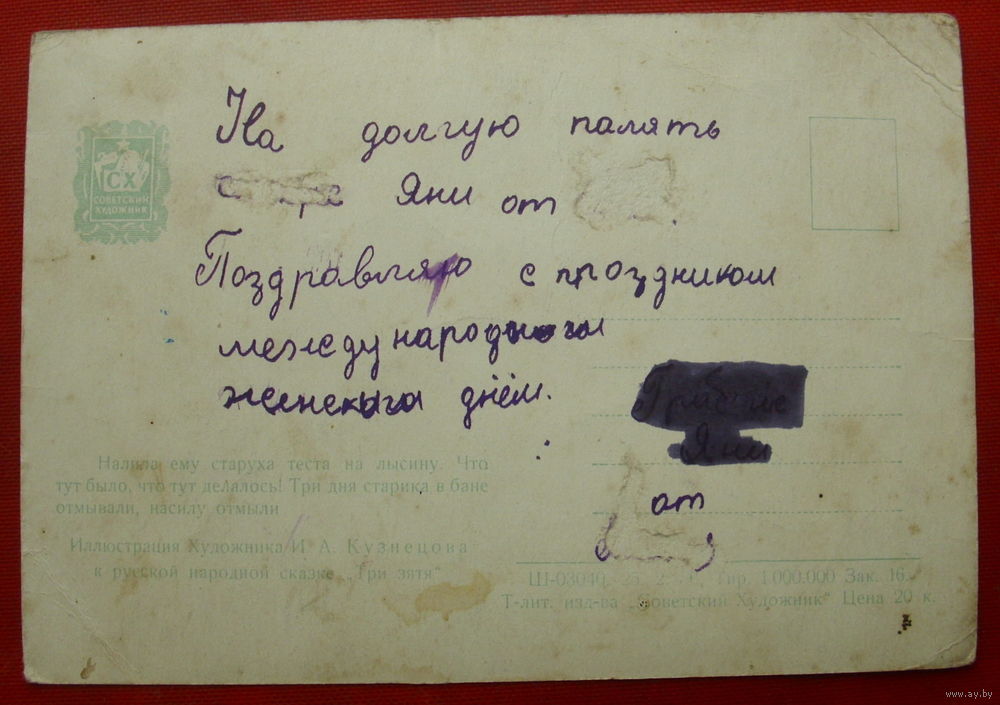 На долгую палять
Яни от
Поздравляю с праздником
международнога
женскага днём.
Яни
от
СХ
СОВЕТСКИЙ
ХУДОЖНИК
Налила ему старуха теста на лысину. Что
тут было, что тут делалось! Три дня старика в бане
отмывали, насилу отмыли
Иллюстрация Художника И. А. Кузнецова
к русской народной сказке „Три зятя“
Ш-03040. Тир. 1.000.000 Зак. 16
Т-лит. изд-ва „Советский Художник“ Цена 20 к.
www.ay.by